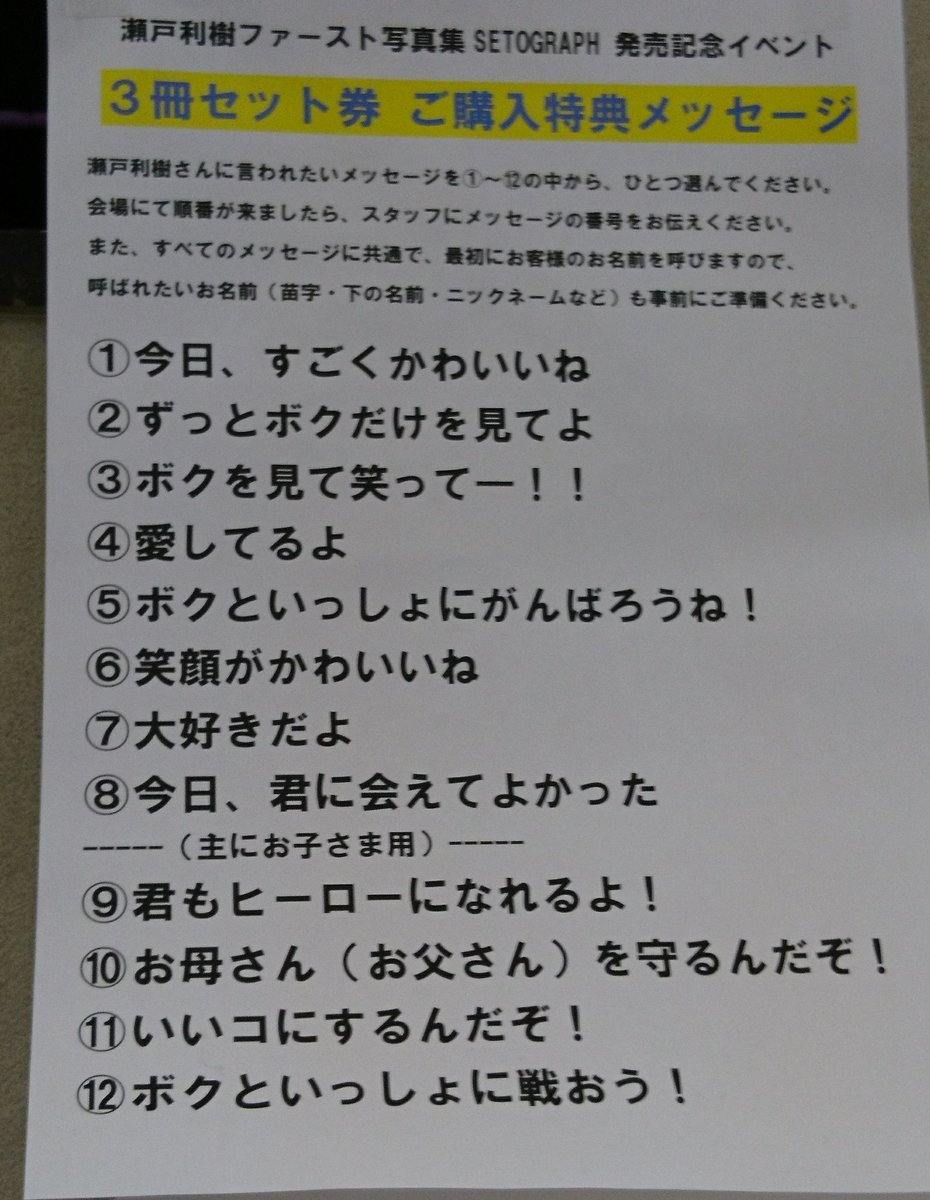 瀬戸利樹ファースト写真集 SETOGRAPH 発売記念イベント
3冊セット券 ご購入特典メッセージ
瀬戸利樹さんに言われたいメッセージを①～⑫の中から、ひとつ選んでください。
会場にて順番が来ましたら、スタッフにメッセージの番号をお伝えください。
また、すべてのメッセージに共通で、最初にお客様のお名前を呼びますので、
呼ばれたいお名前（苗字・下の名前・ニックネームなど）も事前にご準備ください。
①今日、すごくかわいいね
②ずっとボクだけを見てよ
③ボクを見て笑ってー！！
④愛してるよ
⑤ボクといっしょにがんばろうね！
⑥笑顔がかわいいね
⑦大好きだよ
⑧今日、君に会えてよかった
-----（主にお子さま用）-----
⑨君もヒーローになれるよ！
⑩お母さん（お父さん）を守るんだぞ！
⑪いいコにするんだぞ！
⑫ボクといっしょに戦おう！